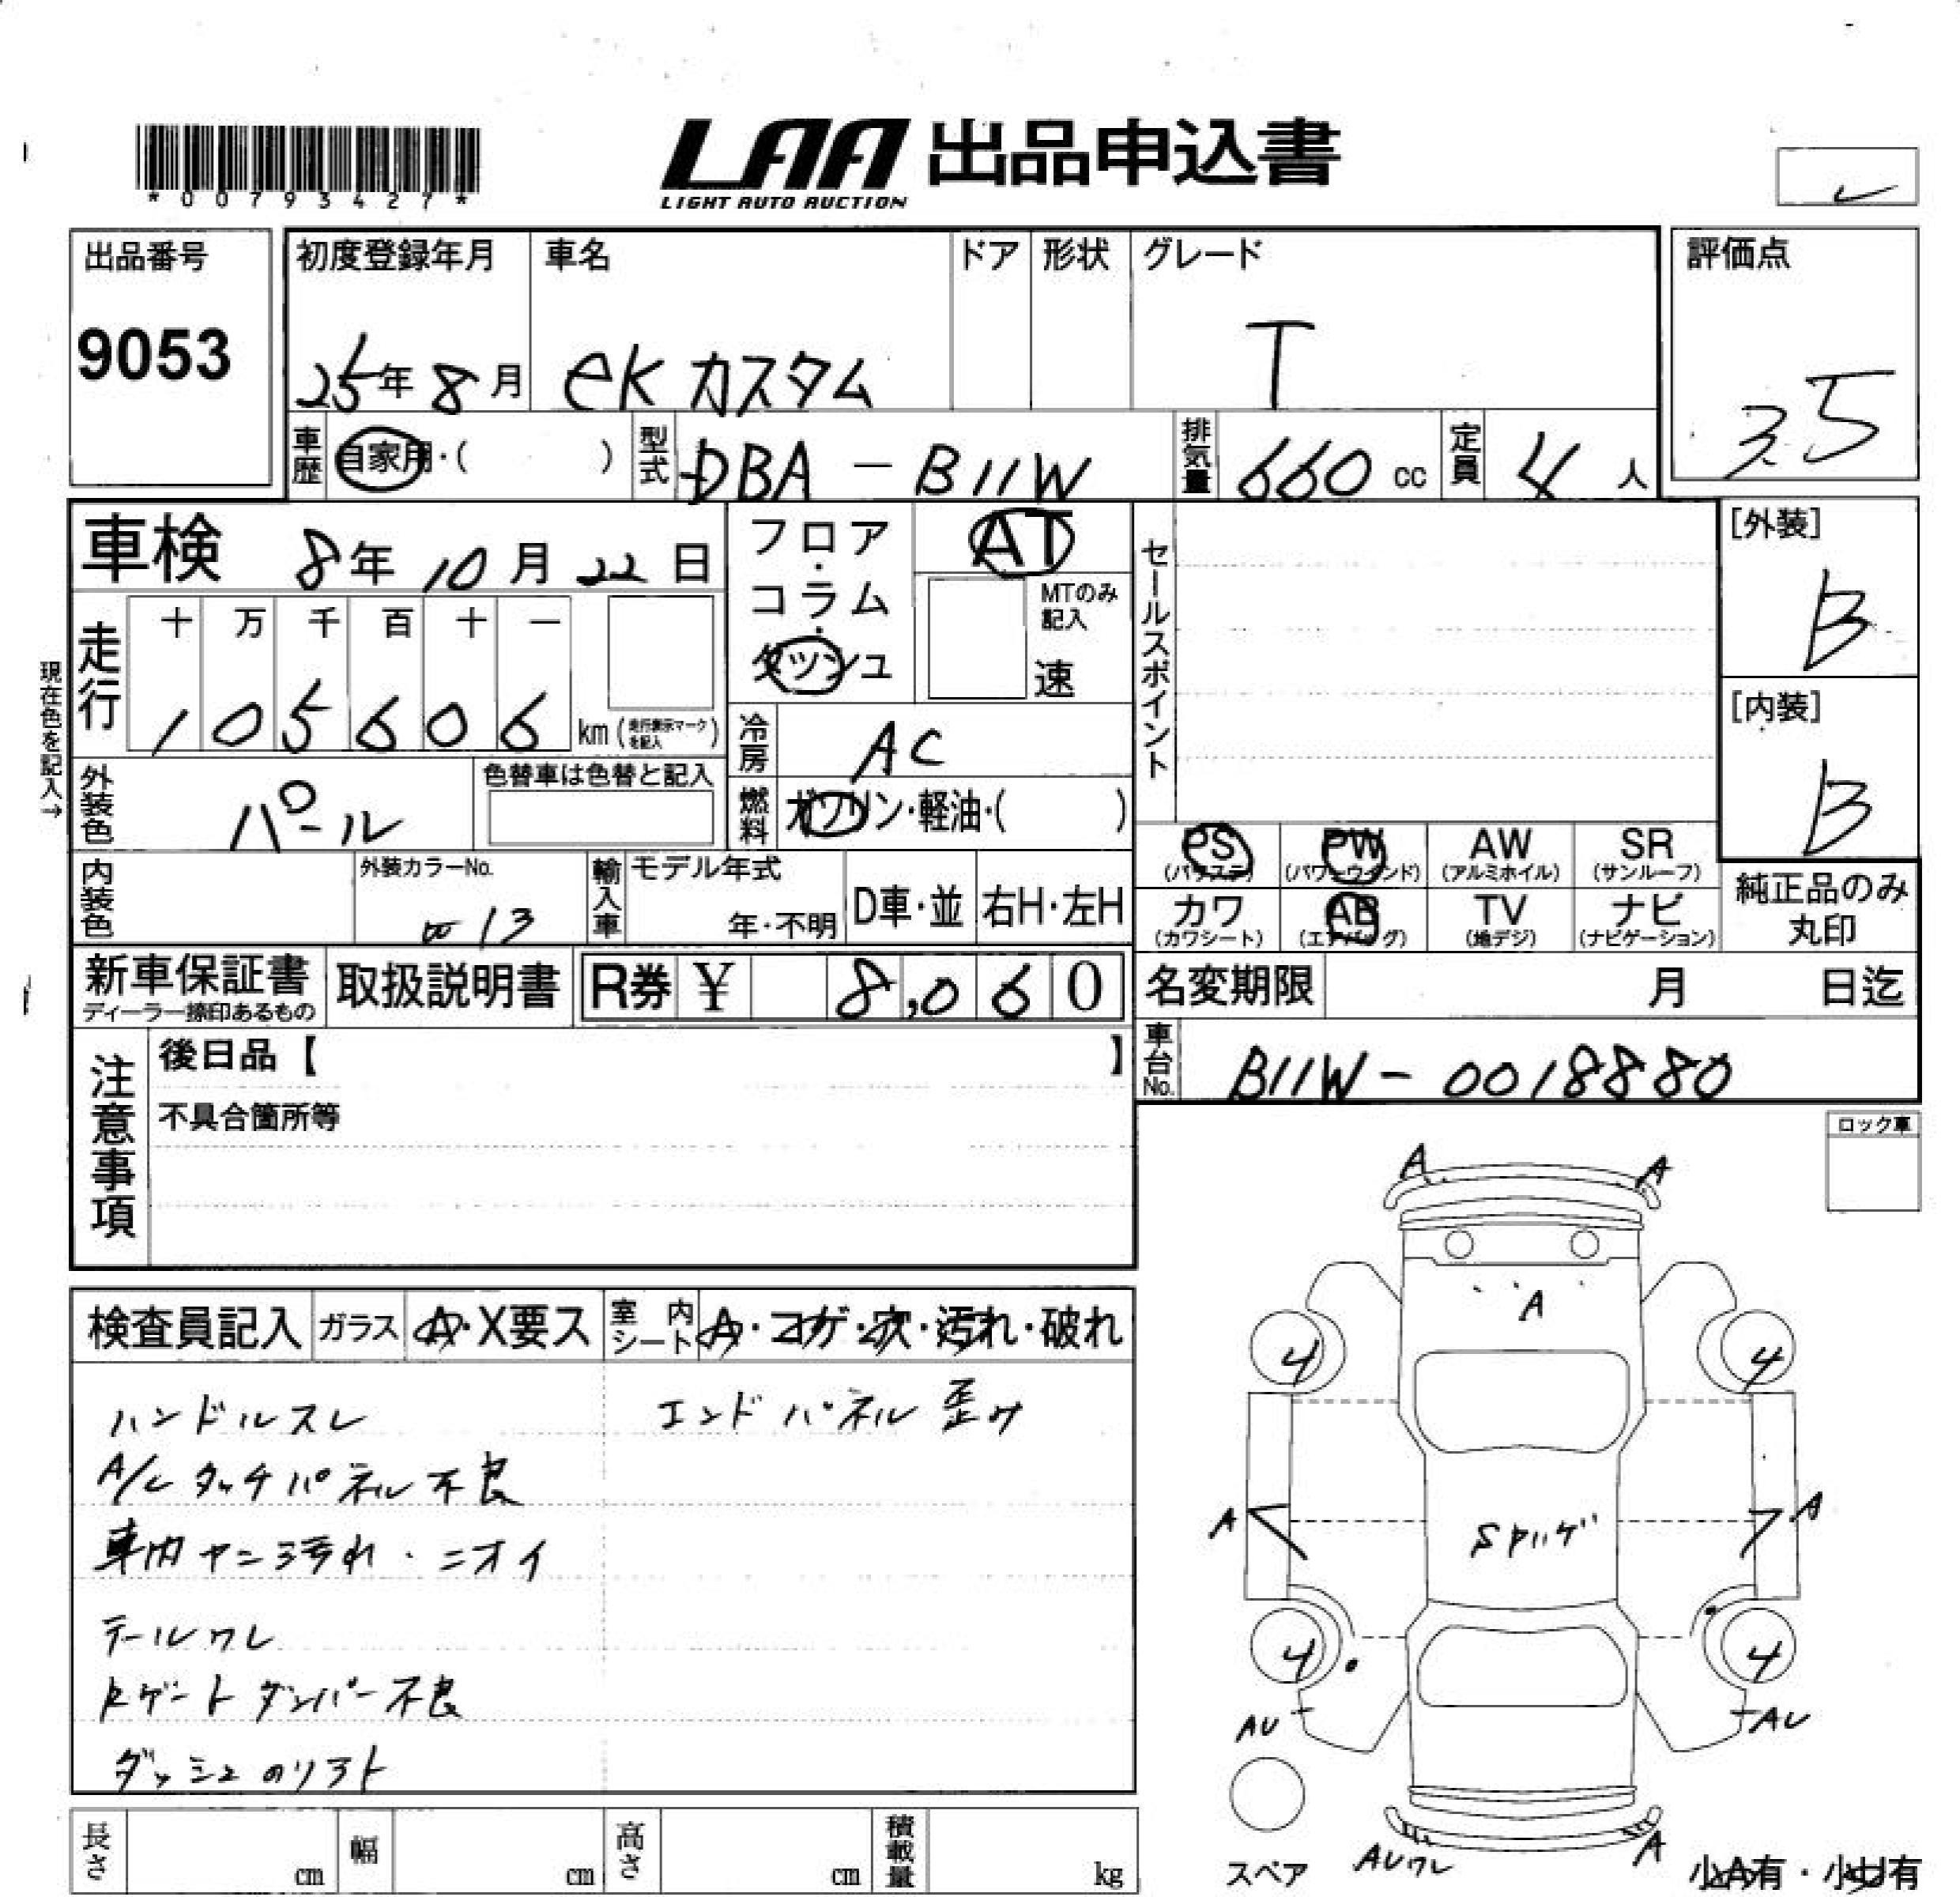 *00793427*
LAA 出品申込書
LIGHT AUTO AUCTION
出品番号
9053
初度登録年月
25年8月
車名
ekカスタム
ドア
形状
グレード
T
評価点
3.5
車歴
自家用・( )
型式
DBA-B11W
排気量
660cc
定員
4人
車検 8年10月22日
フロア・コラム・ダッシュ
AT
MTのみ記入
速
セールスポイント
[外装]
B
[内装]
B
現在色を記入→
走行
十 万 千 百 十 一
1 0 5 6 0 6 km (走行表示マークを記入)
冷房
AC
外装色
パール
色替車は色替と記入
燃料
ガソリン・軽油・( )
PS (パワステ)
PW (パワーウインド)
AW (アルミホイル)
SR (サンルーフ)
カワ (カワシート)
AB (エアバッグ)
TV (地デジ)
ナビ (ナビゲーション)
純正品のみ丸印
内装色
外装カラーNo.
W13
輸入車
モデル年式
年・不明
D車・並
右H・左H
新車保証書
ディーラー捺印あるもの
取扱説明書
R券 ¥ 8,060
名変期限 月 日迄
車台No.
B11W-0018880
注意事項
後日品【 】
不具合箇所等
ロック車
検査員記入
ガラス
A・X要ス
室内シート
A・コゲ・穴・汚れ・破れ
ハンドルスレ
A/C タッチパネル不良
車内ヤニ汚れ・ニオイ
テールワレ
Rゲートダンパー不良
ダッシュのリフト
エンドパネル歪み
A
A
A
4
4
A
A
Sハゲ
4
4
AU
AU
スペア
AUワレ
A
小A有・小U有
長さ cm
幅 cm
高さ cm
積載量 kg